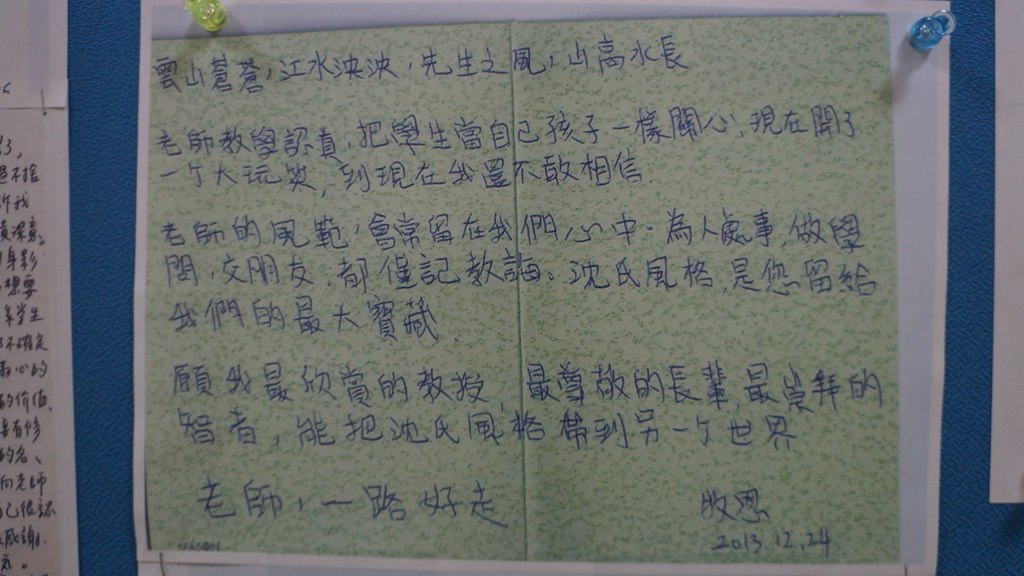 雲山蒼蒼,江水泱泱,先生之風,山高水長
老師教學認真,把學生當自己孩子一樣關心,現在開了
一个大玩笑,到現在我還不敢相信.
老師的風範,會常留在我們心中.為人處事,做學
問,交朋友,都僅記教誨.沈氏風格,是您留給
我們的最大寶藏.
願我最欣賞的教授,最尊敬的長輩,最崇拜的
智者,能把沈氏風格帶到另一个世界
老師,一路好走
敬恩
2013.12.24
SEASON
老師
學生
的价值
向老師
感謝